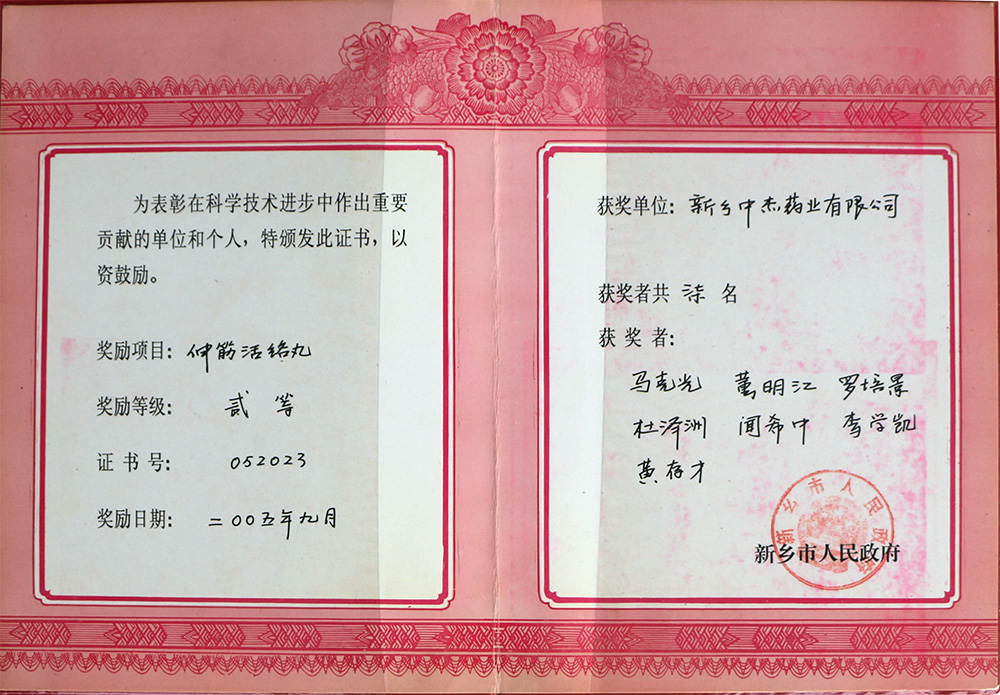 为表彰在科学技术进步中作出重要
贡献的单位和个人，特颁发此证书，以
资鼓励。
奖励项目：伸筋活络丸
奖励等级：贰等
证书号：052023
奖励日期：二00五年九月
获奖单位：新乡中杰药业有限公司
获奖者共 柒 名
获奖者：
马克光 万明江 罗培景
杜泽洲 闻希中 李学凯
黄存才
新乡市人民政府
新乡市人民政府